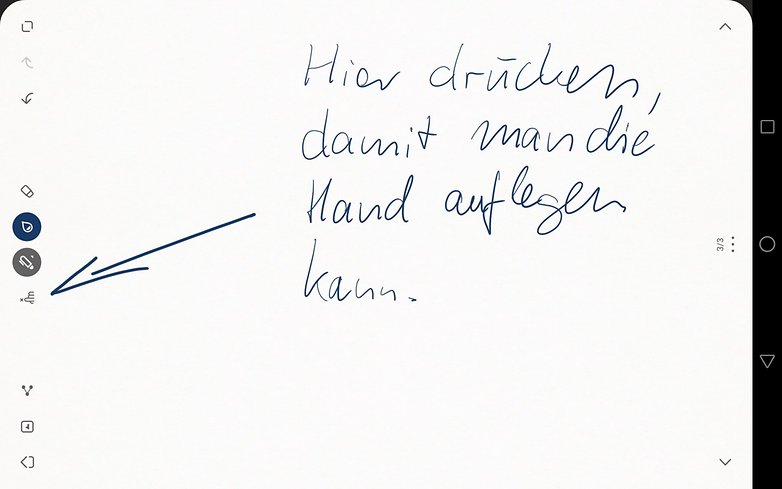 Hier drücken,
damit man die
Hand auflegen
kann.
3/3